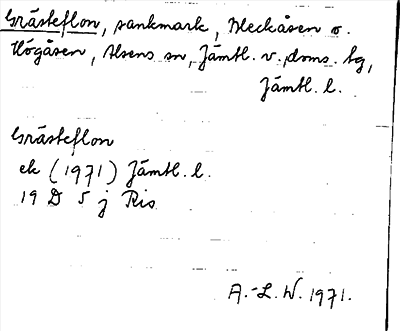 Gråsteflon, sankmark, Bleckåsen o.
Högåsen, Alsens sn, Jämtl. v. doms. tg,
Jämtl. l.
Gråsteflon
ek (1971) Jämtl. l.
19 D 5 j Ris
A.-L. W. 1971.